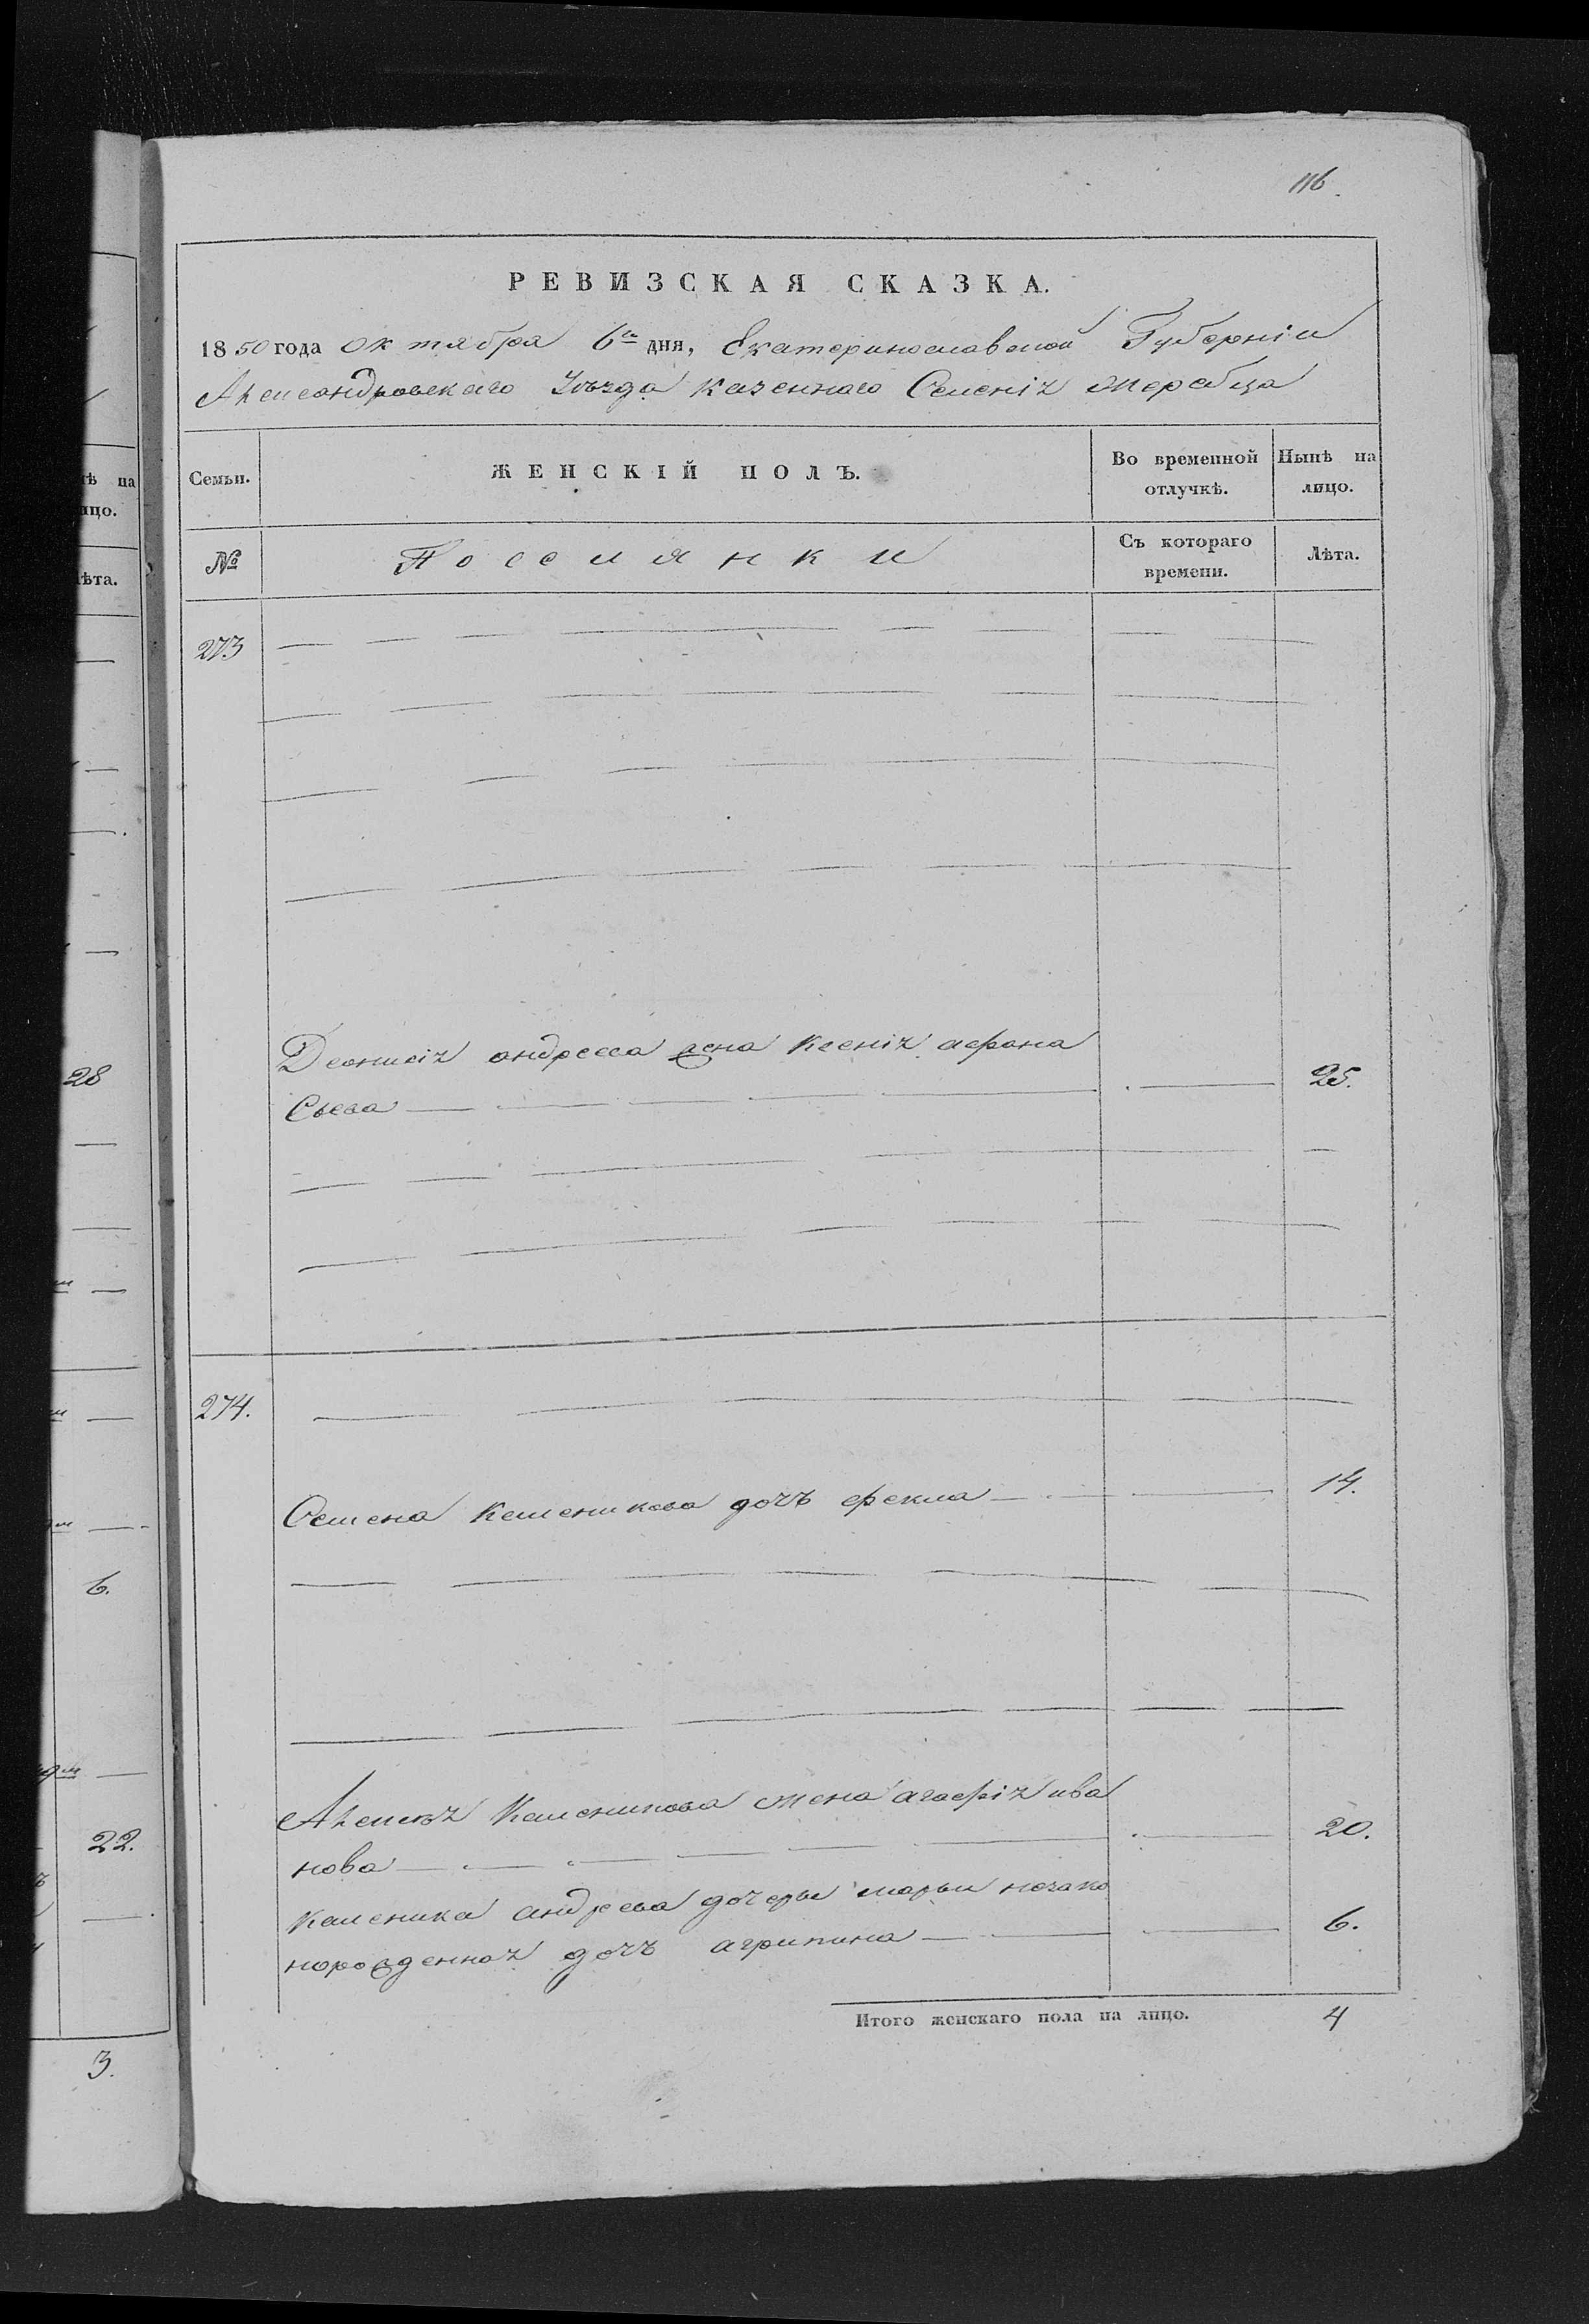 116.
РЕВИЗСКАЯ СКАЗКА.
1850 года октября 6го дня, Екатеринославской Губерніи
Александровскаго Уѣзда казеннаго Селенія Жеребца
Семьи.
ЖЕНСКІЙ ПОЛЪ.
Во временной отлучкѣ.
Нынѣ на лицо.
№
Поселянки
Съ котораго времени.
Лѣта.
273
Деонисія андреева жена ксенія афана
Сьева 25.
274.
Семена Каленикова дочъ фекла 14.
Алексѣя Каленикова жена агафія ива
нова 20.
каленика андреева дочери марьи незако
норожденная дочъ агрипина 6.
Итого женскаго пола на лицо. 4
ѣ на
ицо.
ѣта.
28
6.
22.
3.